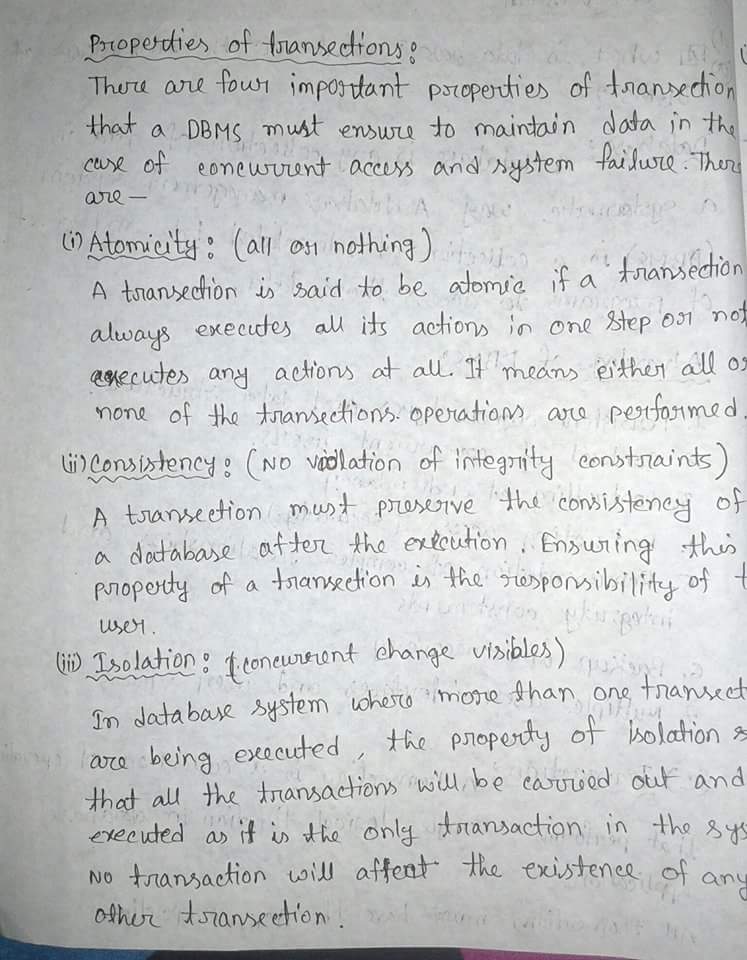 Properties of transections:
There are four important properties of transection
that a DBMS must ensure to maintain data in the
case of concurrent access and system failure. There
are —
(i) Atomicity: (all or nothing)
A transection is said to be atomic if a transection
always executes all its actions in one step or not
executes any actions at all. It means either all or
none of the transections operations are performed.
(ii) Consistency: (NO violation of integrity constraints)
A transection must preserve the consistency of
a database after the execution. Ensuring this
property of a transection is the responsibility of t
user.
(iii) Isolation: (concurrent change visibles)
In database system where more than one transect
are being executed, the property of isolation s
that all the transactions will be carried out and
executed as if it is the only transaction in the sys
NO transaction will affect the existence of any
other transection.